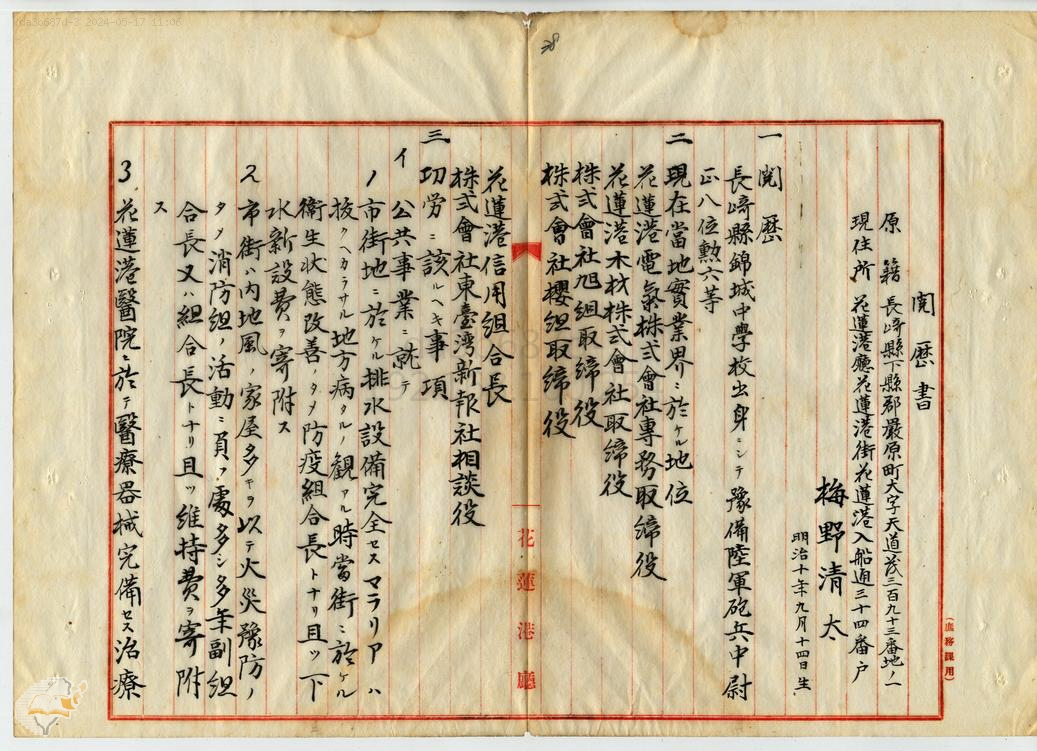 閲歴書
原籍 長崎縣下縣郡嚴原町大字天道茂三百九十三番地ノ一
現住所 花蓮港廳花蓮港街花蓮港入船通三十四番戶
梅野清太
明治十年九月十四日生
一 閲歴
長崎縣錦城中學校出身ニシテ豫備陸軍砲兵中尉
正八位勲六等
二 現在當地實業界ニ於ケル地位
花蓮港電氣株式會社專務取締役
花蓮港木材株式會社取締役
株式會社旭組取締役
株式會社櫻組取締役
花蓮港信用組合長
株式會社東臺湾新報社相談役
三 功労ニ該ルヘキ事項
イ 公共事業ニ就テ
1 市街地ニ於ケル排水設備完全セスマラリアハ
拔クヘカラサル地方病タルノ観アル時當街ニ於ケル
衛生狀態改善ノタメ防疫組合長トナリ且ツ下
水新設費ヲ寄附ス
2 市街ハ内地風ノ家屋多キヲ以テ火災豫防ノ
タメ消防組ノ活動ニ負フ處多シ多年副組
合長又ハ組合長トナリ且ツ維持費ヲ寄附
ス
3. 花蓮港醫院ニ於テ醫療器械完備セス治療
花蓮港廳
(庶務課用)
2024-05-17 11:06